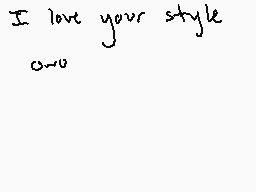 I love your style
owo